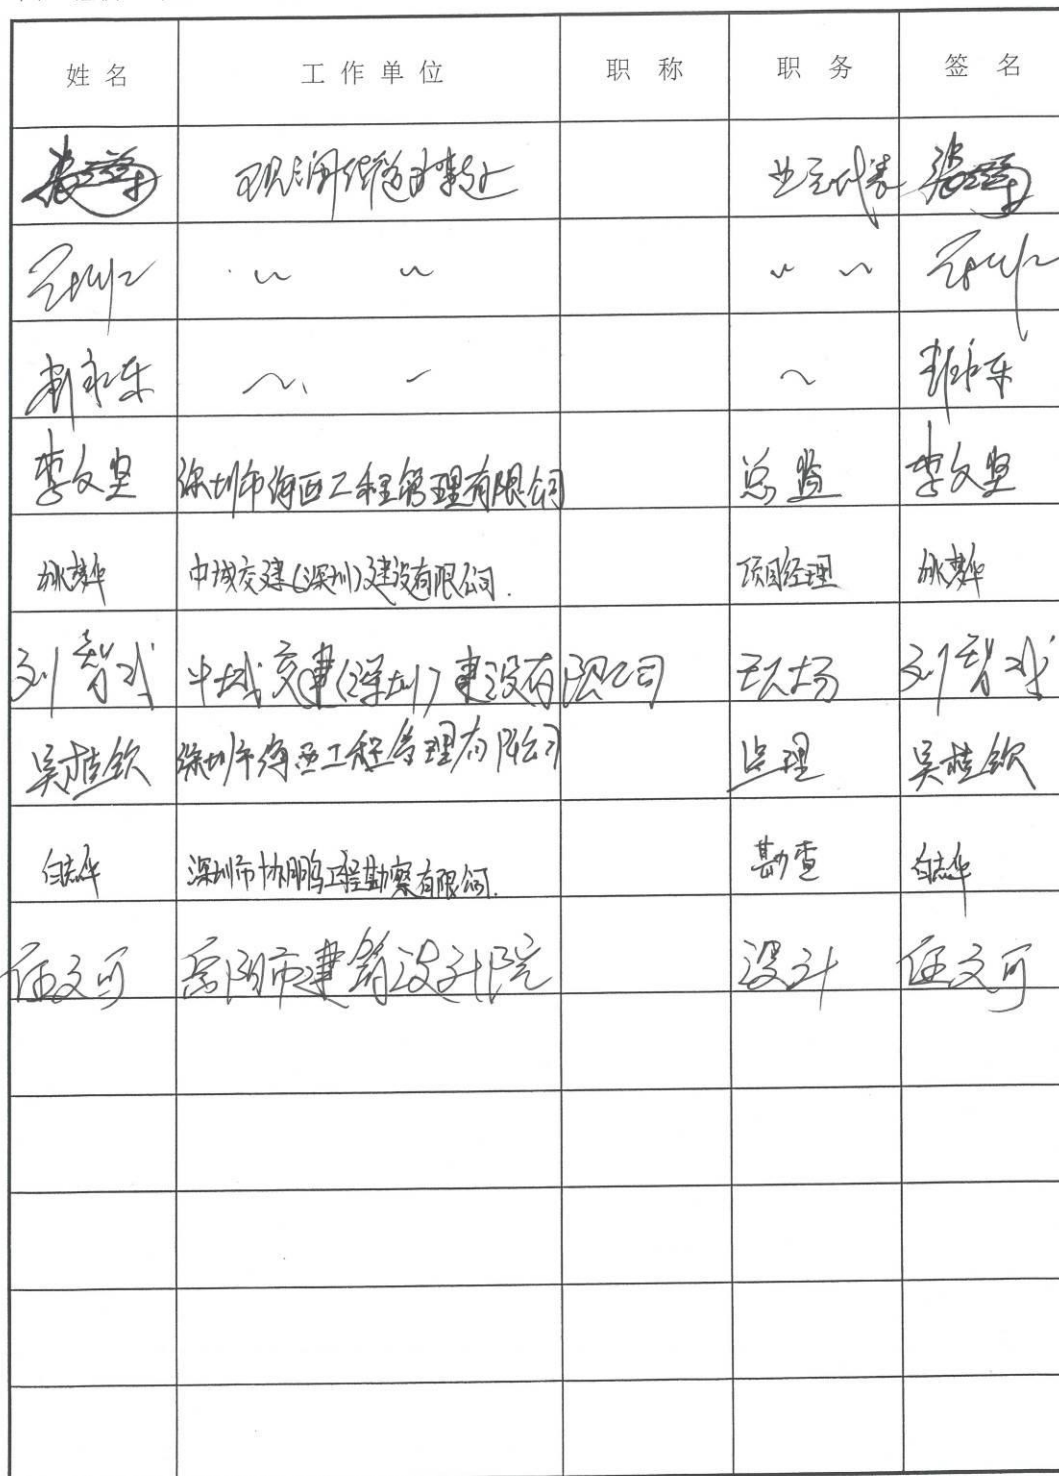 姓名 工作单位 职称 职务 签名
观澜街道办事处 业主代表
李文坚 深圳市海西工程管理有限公司 总监 李文坚
中城交建(深圳)建设有限公司. 项目经理
刘智成 中城交建(深圳)建设有限公司 现场 刘智成
吴桂钦 深圳市海西工程管理有限公司 监理 吴桂钦
白志华 深圳市协鹏工程勘察有限公司. 勘查 白志华
任文可 岳阳市建筑设计院 设计 任文可